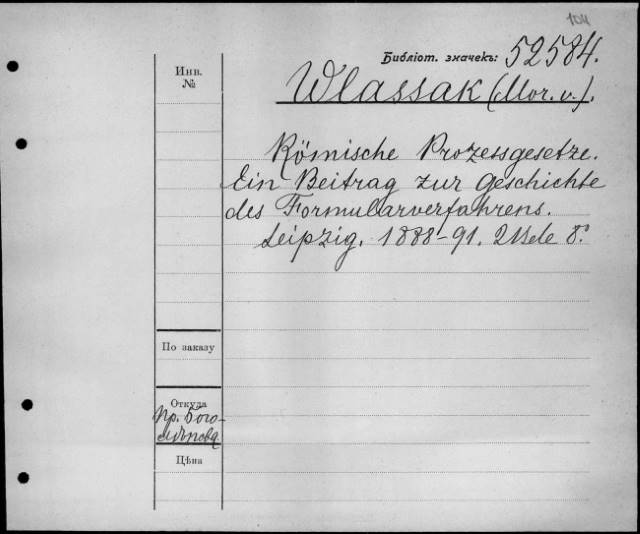 104
Библіот. значекъ: 52584.
Инв.
№
Wlassak (Mor. v.).
Römische Prozessgesetze.
Ein Beitrag zur Geschichte
des Formularverfahrens.
Leipzig. 1888-91. 2 Bde 8º.
По заказу
Откуда
Пр. Бого-
лѣпова
Цѣна